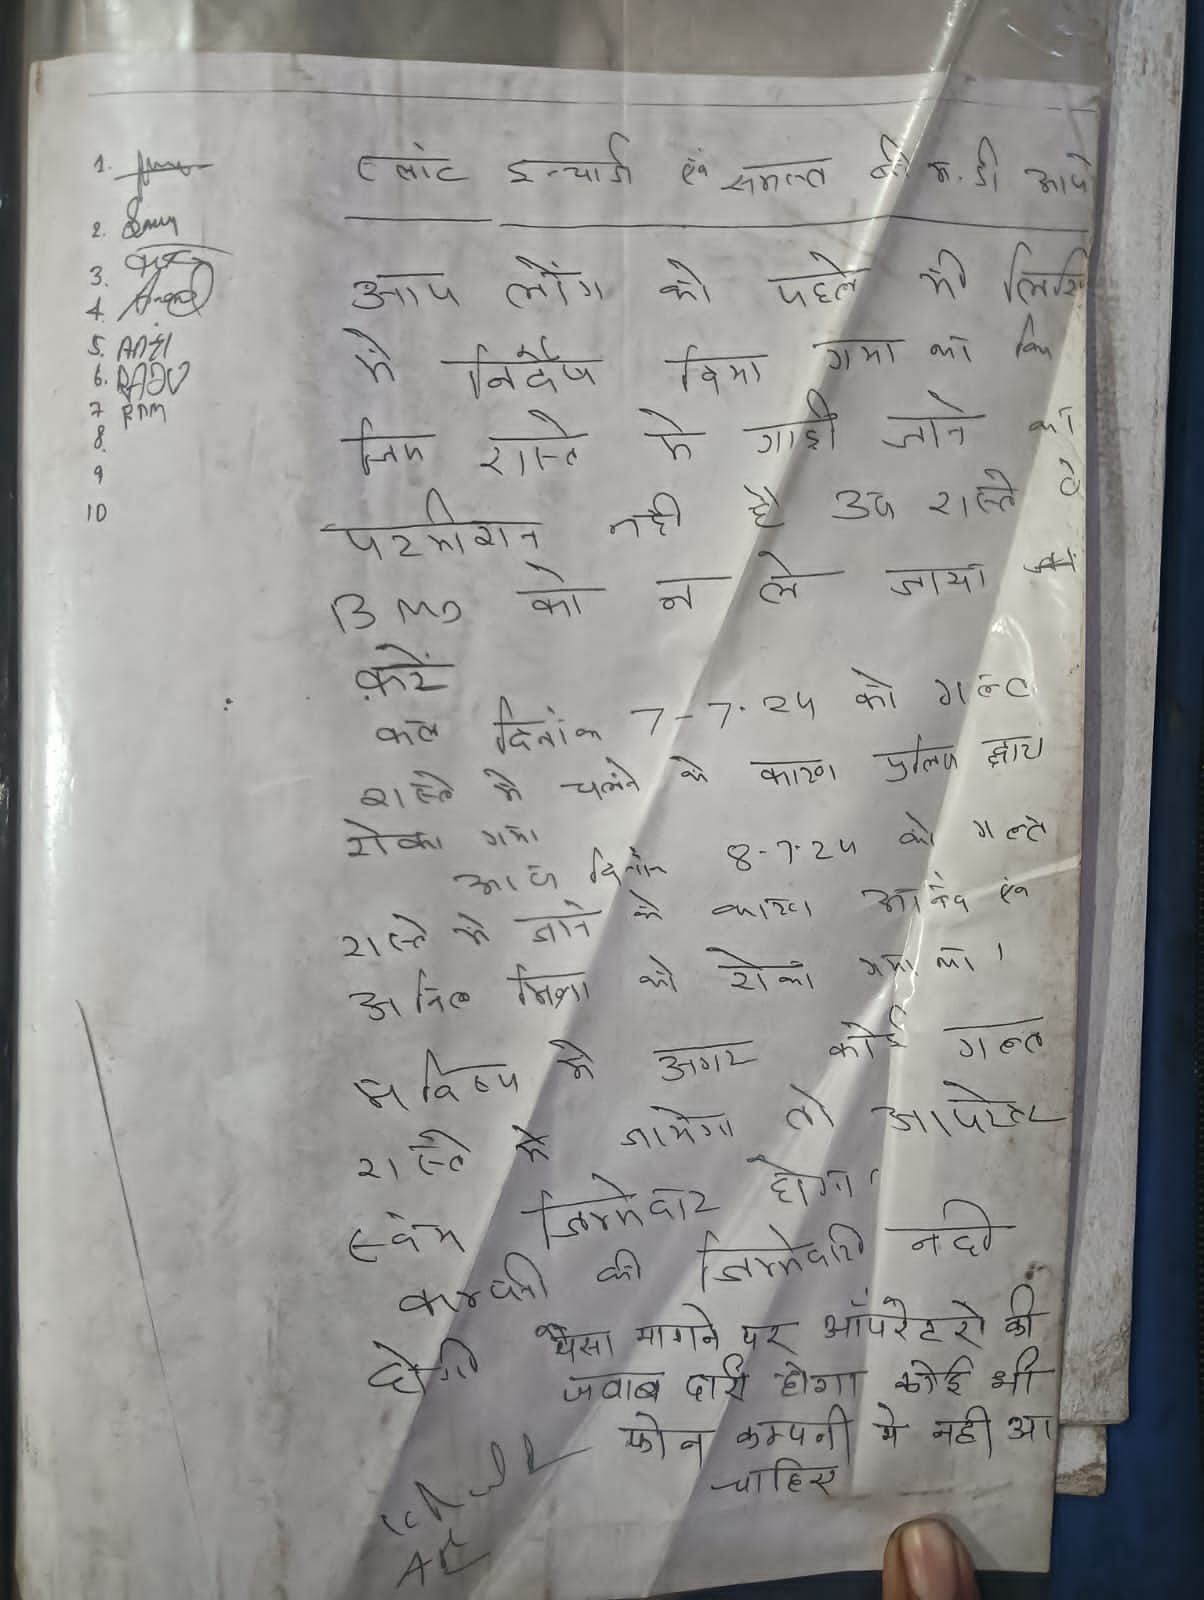 1.
2.
3.
4. Anand
5. ANIL
6. RAJU
7 RAM
8.
9
10
प्लांट इन्चार्ज एवं समस्त बी.म.डी आपरे
आप लोंग को पहले भी लिखि
में निर्देश दिया गया था कि
जिस रास्ते मे गाड़ी जाने का
परमीशन नही है उस रास्ते से
BMD को न ले जाया
करें
कल दिनांक 7-7-24 को गलत
रास्ते मे चलने के कारण पुलिस द्वारा
रोका गया
आज दिनांक 8-7-24 को गलत
रास्ते मे जाने के कारण आनंद एवं
अनिल मिश्रा को रोका गया था।
भविष्य मे अगर कोई गलत
रास्ते मे जायेगा तो आपरेटर
स्वंय जिम्मेदार होगा।
कम्पनी की जिम्मेदारी नही
होगी
पैसा मागने पर ऑपरेटरो की
जवाब दारी होगा कोई भी
फोन कम्पनी मे नही आ
चाहिए